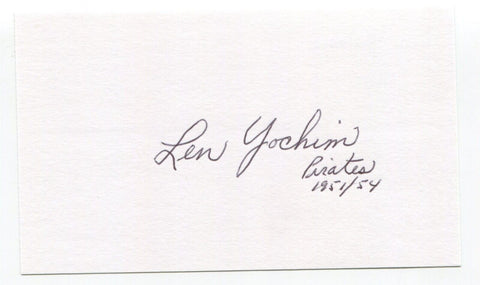 Len Yochim
Pirates
1951/54